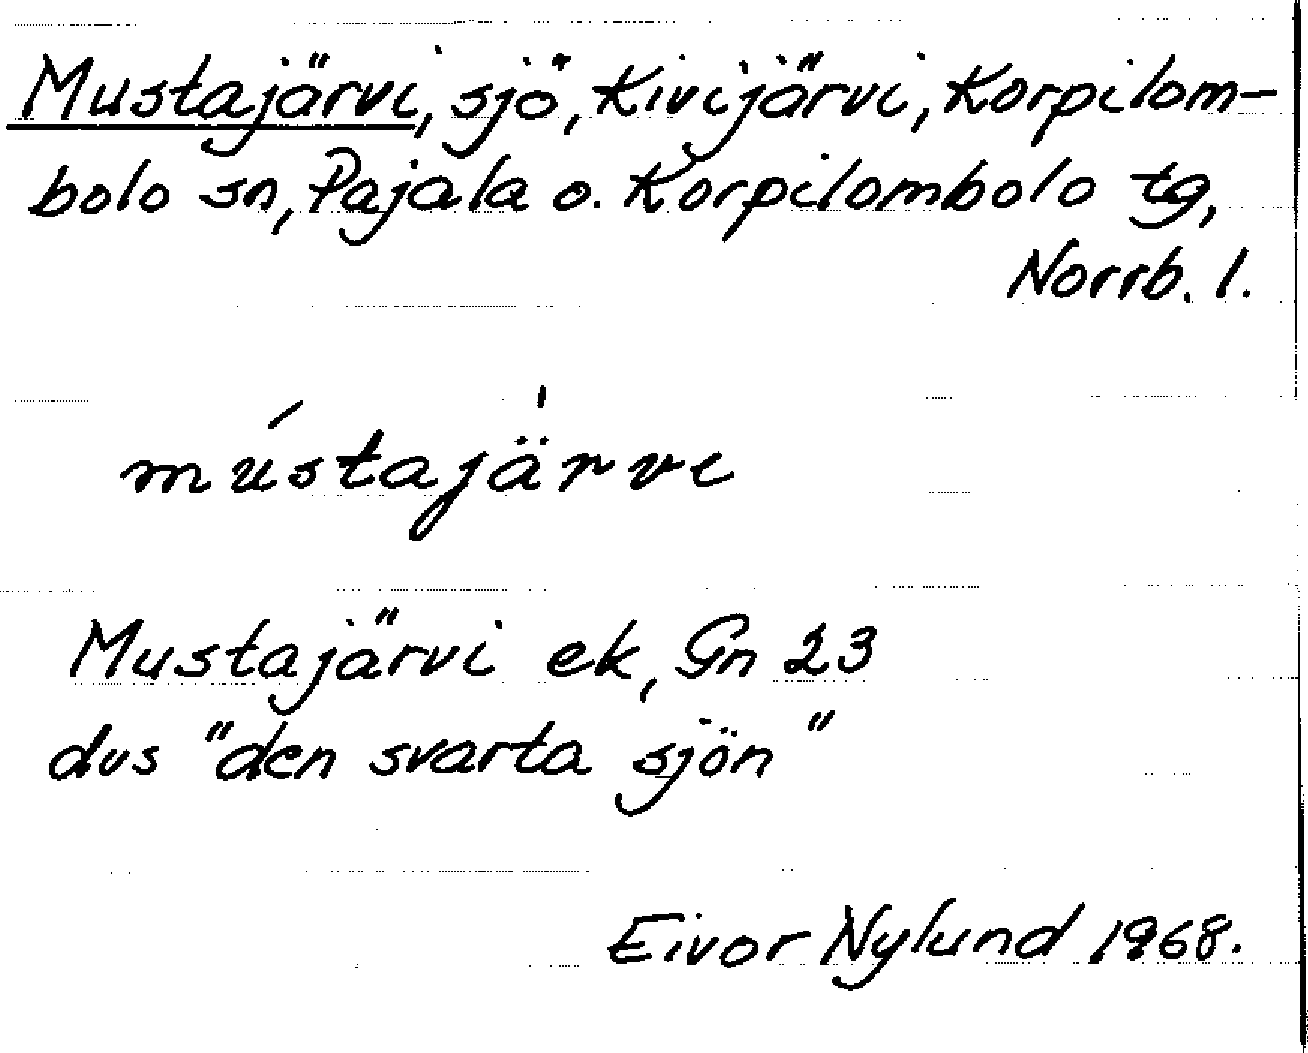 Mustajärvi, sjö, Kivijärvi, Korpilom-
bolo sn, Pajala o. Korpilombolo tg,
Norrb. l.
mústajä́rvi
Mustajärvi ek, Gn 23
dvs "den svarta sjön"
Eivor Nylund 1968.